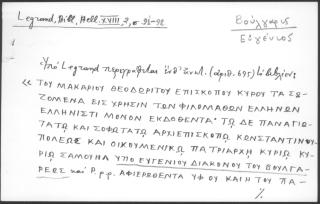 Legrand, Bibl. Hell. XVIII, 2, σ. 91-92
Βούλγαρις
Εὐγένιος
Ὑπὸ Legrand περιγράφεται ἐνθ' ἀνωτ. (ἀριθ. 695)
« ΤΟΥ ΜΑΚΑΡΙΟΥ ΘΕΟΔΩΡΙΤΟΥ ΕΠΙΣΚΟΠΟΥ ΚΥΡΟΥ ΤΑ ΣΩ-
ΖΟΜΕΝΑ ΕΙΣ ΧΡΗΣΙΝ ΤΩΝ ΦΙΛΟΜΑΘΩΝ ΕΛΛΗΝΩΝ
ΕΛΛΗΝΙΣΤΙ ΜΟΝΟΝ ΕΚΔΟΘΕΝΤΑ· ΤΩ ΔΕ ΠΑΝΑΓΙΩ-
ΤΑΤΩ ΚΑΙ ΣΟΦΩΤΑΤΩ ΑΡΧΙΕΠΙΣΚΟΠΩ ΚΩΝΣΤΑΝΤΙΝΟΥ-
ΠΟΛΕΩΣ ΚΑΙ ΟΙΚΟΥΜΕΝΙΚΩ ΠΑΤΡΙΑΡΧΗ ΚΥΡΙΩ ΚΥ-
ΡΙΩ ΣΑΜΟΥΗΛ ΥΠΟ ΕΥΓΕΝΙΟΥ ΔΙΑΚΟΝΟΥ ΤΟΥ ΒΟΥΛΓΑ-
ΡΕΩΣ καὶ ΑΦΙΕΡΩΘΕΝΤΑ ΥΦ ΟΥ ΚΑΙ Η ΤΟΥ ΠΑ-
./.